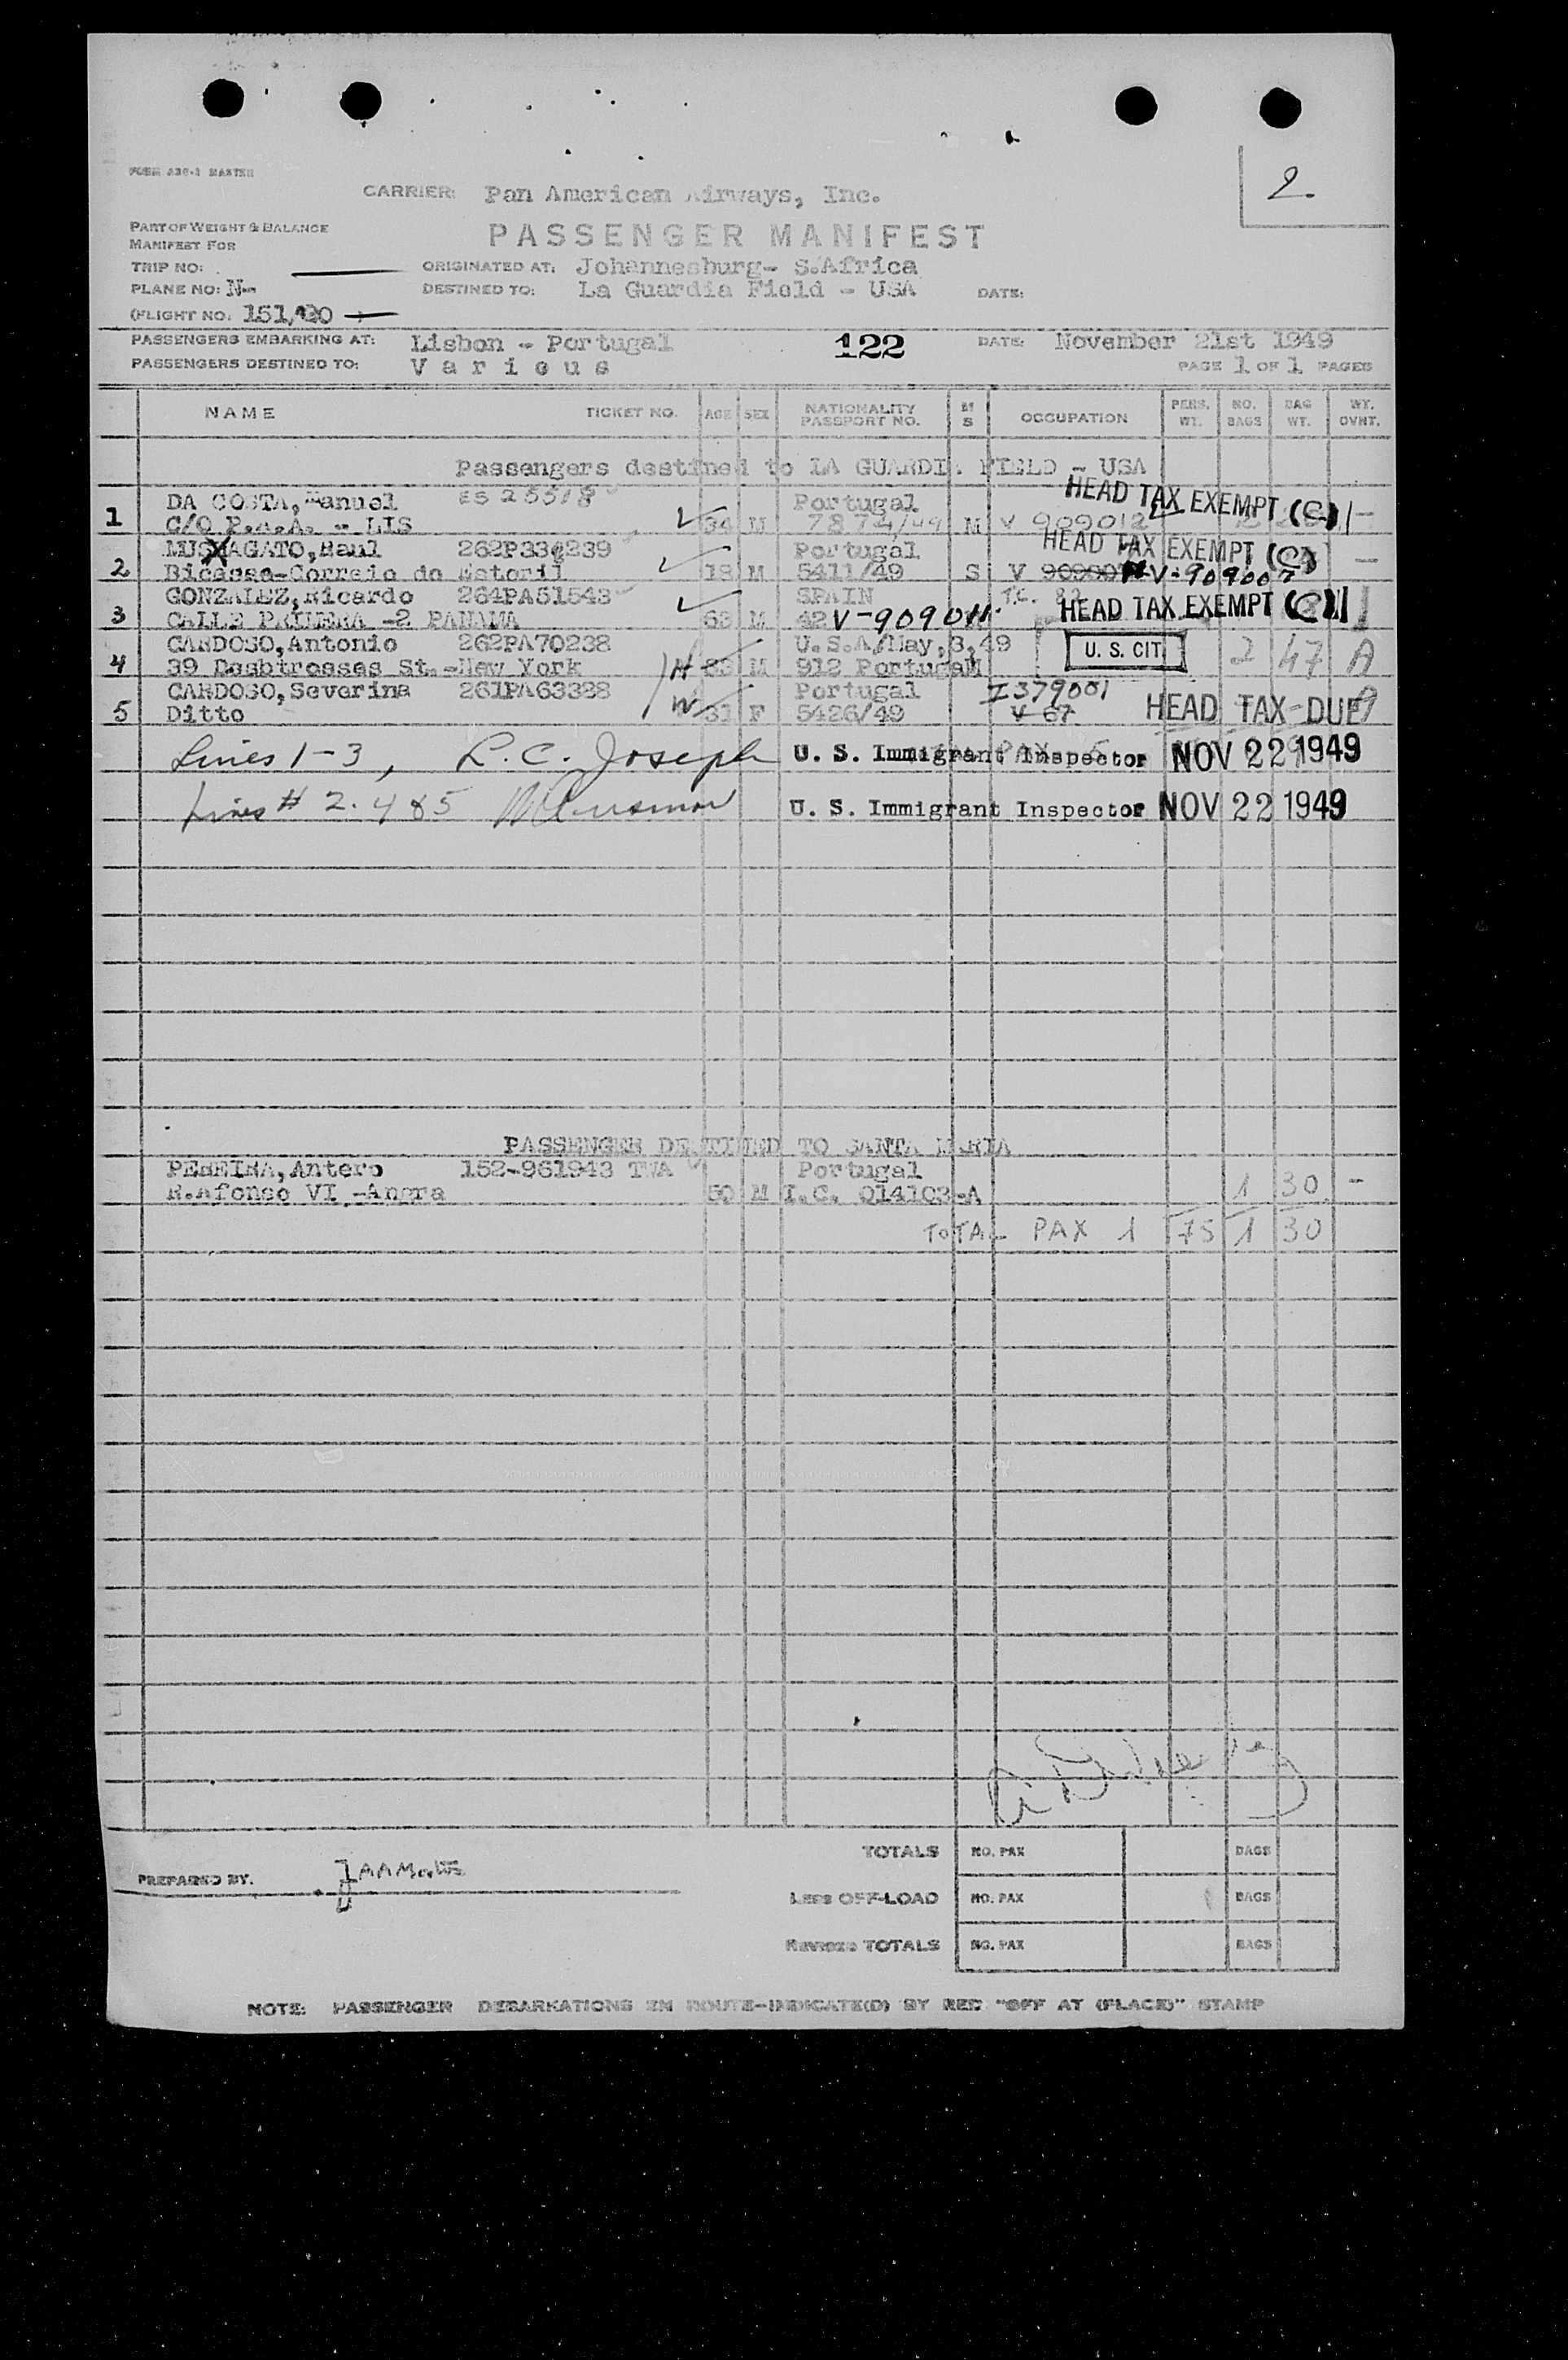 FORM MASTER
2
CARRIER: Pan American Airways, Inc.
PART OF WEIGHT & BALANCE
MANIFEST FOR
PASSENGER MANIFEST
TRIP NO: ORIGINATED AT: Johannesburg- S.Africa
PLANE NO: N- DESTINED TO: La Guardia Field - USA DATE:
(FLIGHT NO. 151/
PASSENGERS EMBARKING AT: Lisbon - Portugal 122 DATE: November 21st 1949
PASSENGERS DESTINED TO: V a r i o u s PAGE 1 OF 1 PAGES
NAME TICKET NO. AGE SEX NATIONALITY PASSPORT NO. M S OCCUPATION PERS. WT. NO. BAGS BAG WT. WT. OVNT.
Passengers destined to LA GUARDIA FIELD - USA
DA COSTA, Manuel ES 25518 Portugal HEAD TAX EXEMPT (C)
1 C/O P.A.A. - LIS 34 M 7874/49 M V 909012
Raul Portugal HEAD TAX EXEMPT (C)
2 Bicesse-Correio do Estoril 18 M 5411/49 S V V-909007
GONZALEZ, Ricardo 264PA51543 SPAIN
3 CALLE PRIMERA -2 PANAMA 63 M 42 V-909011 HEAD TAX EXEMPT (C)
CARDOSO, Antonio 262PA70238 U.S.A/May,3,49 U. S. CIT. 2 47 A
4 39 Desbrosses St.-New York H M 912 Portugal M
CARDOSO, Severina 261PA63328 Portugal I379001
5 Ditto W 31 F 5426/49 V 67 HEAD TAX DUE
Lines 1-3, L.C. Joseph U. S. Immigrant Inspector NOV 22 1949
Lines # 2. 4 & 5 U. S. Immigrant Inspector NOV 22 1949
PASSENGER DESTINED TO SANTA MARIA
PEREIRA, Antero 152-961943 TWA Portugal
R.Afonso VI -Angra 50 M I.C. 014103-A 1 30 -
TOTAL PAX 1 75 1 30
TOTALS NO. PAX BAGS
PREPARED BY:
Less OFF-LOAD NO. PAX BAGS
Revised TOTALS NO. PAX BAGS
NOTE: PASSENGER DEBARKATIONS EN ROUTE-INDICATE(D) BY RED "OFF AT (PLACE)" STAMP